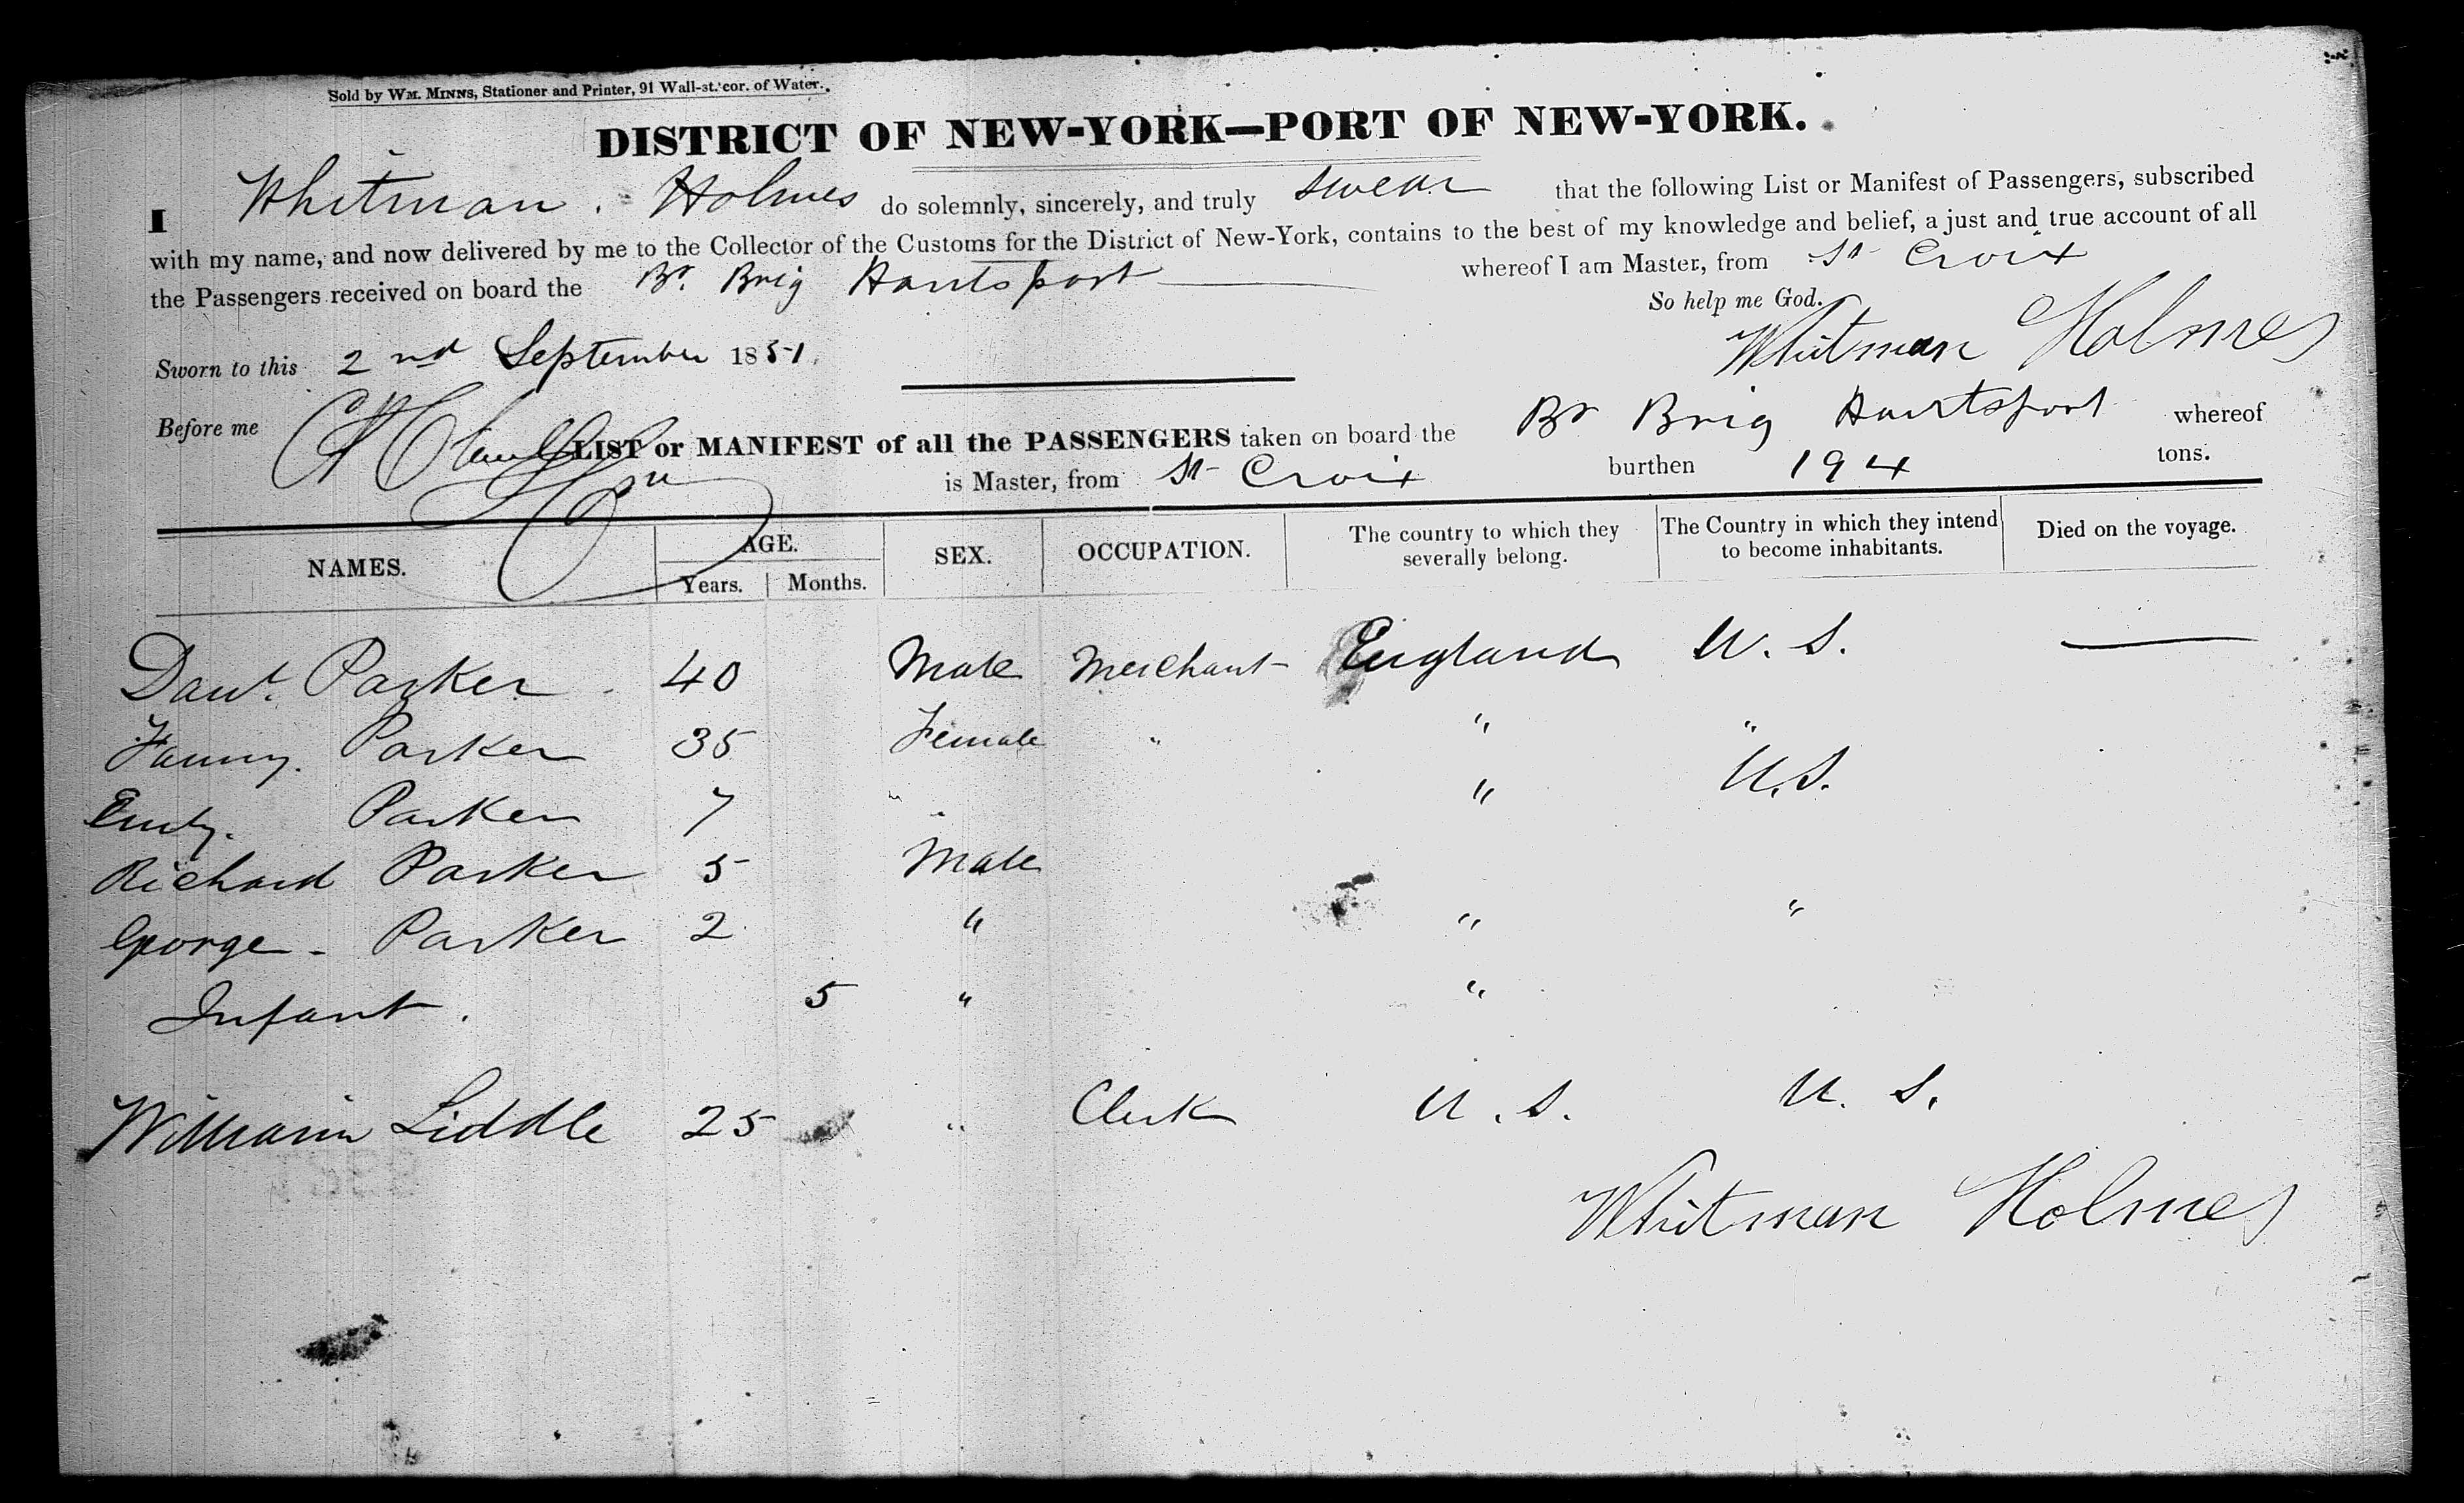 Sold by WM. MINNS, Stationer and Printer, 91 Wall-st. cor. of Water.
DISTRICT OF NEW-YORK—PORT OF NEW-YORK.
I Whitman Holmes do solemnly, sincerely, and truly swear that the following List or Manifest of Passengers, subscribed
with my name, and now delivered by me to the Collector of the Customs for the District of New-York, contains to the best of my knowledge and belief, a just and true account of all
the Passengers received on board the Br. Brig Hantsport whereof I am Master, from St Croix
So help me God.
Whitman Holmes
Sworn to this 2nd September 1851.
Before me
LIST or MANIFEST of all the PASSENGERS taken on board the Br Brig Hantsport whereof
is Master, from St Croix burthen 194 tons.
NAMES. AGE. SEX. OCCUPATION. The country to which they severally belong. The Country in which they intend to become inhabitants. Died on the voyage.
Years. Months.
Danl. Parker 40 Male Merchant England U. S. —
Fanny. Parker 35 Female " " "
Parker 7 " " U.S.
Richard Parker 5 Male
George - Parker 2 " " "
Infant. 5 " "
William Liddle 25 " Clerk U. S. U. S.
Whitman Holmes